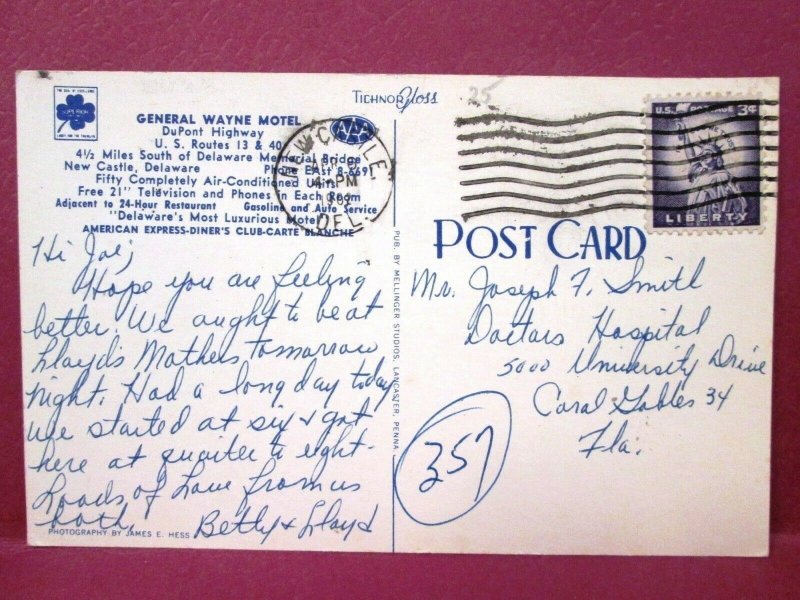 TICHNOR Gloss
25
GENERAL WAYNE MOTEL
DuPont Highway
U. S. Routes 13 & 40
4½ Miles South of Delaware Memorial Bridge
New Castle, Delaware Phone EAst 8-6691
Fifty Completely Air-Conditioned Units
Free 21" Television and Phones in Each Room
Adjacent to 24-Hour Restaurant Gasoline and Auto Service
"Delaware's Most Luxurious Motel"
AMERICAN EXPRESS-DINER'S CLUB-CARTE BLANCHE
AAA
NEW CASTLE
PM
DEL.
U.S. POSTAGE 3¢
LIBERTY
POST CARD
Hi Joe,
Hope you are feeling
better. We ought to be at
Lloyd's Mothers tomorrow
night. Had a long day today
we started at six & got
here at quaiter to eight-
Loads of Love from us
both, Betty & Lloyd
PHOTOGRAPHY BY JAMES E. HESS
PUB. BY MELLINGER STUDIOS, LANCASTER, PENNA.
Mr. Joseph F. Smith
Doctors Hospital
5000 University Drive
Coral Gables 34
Fla.
357